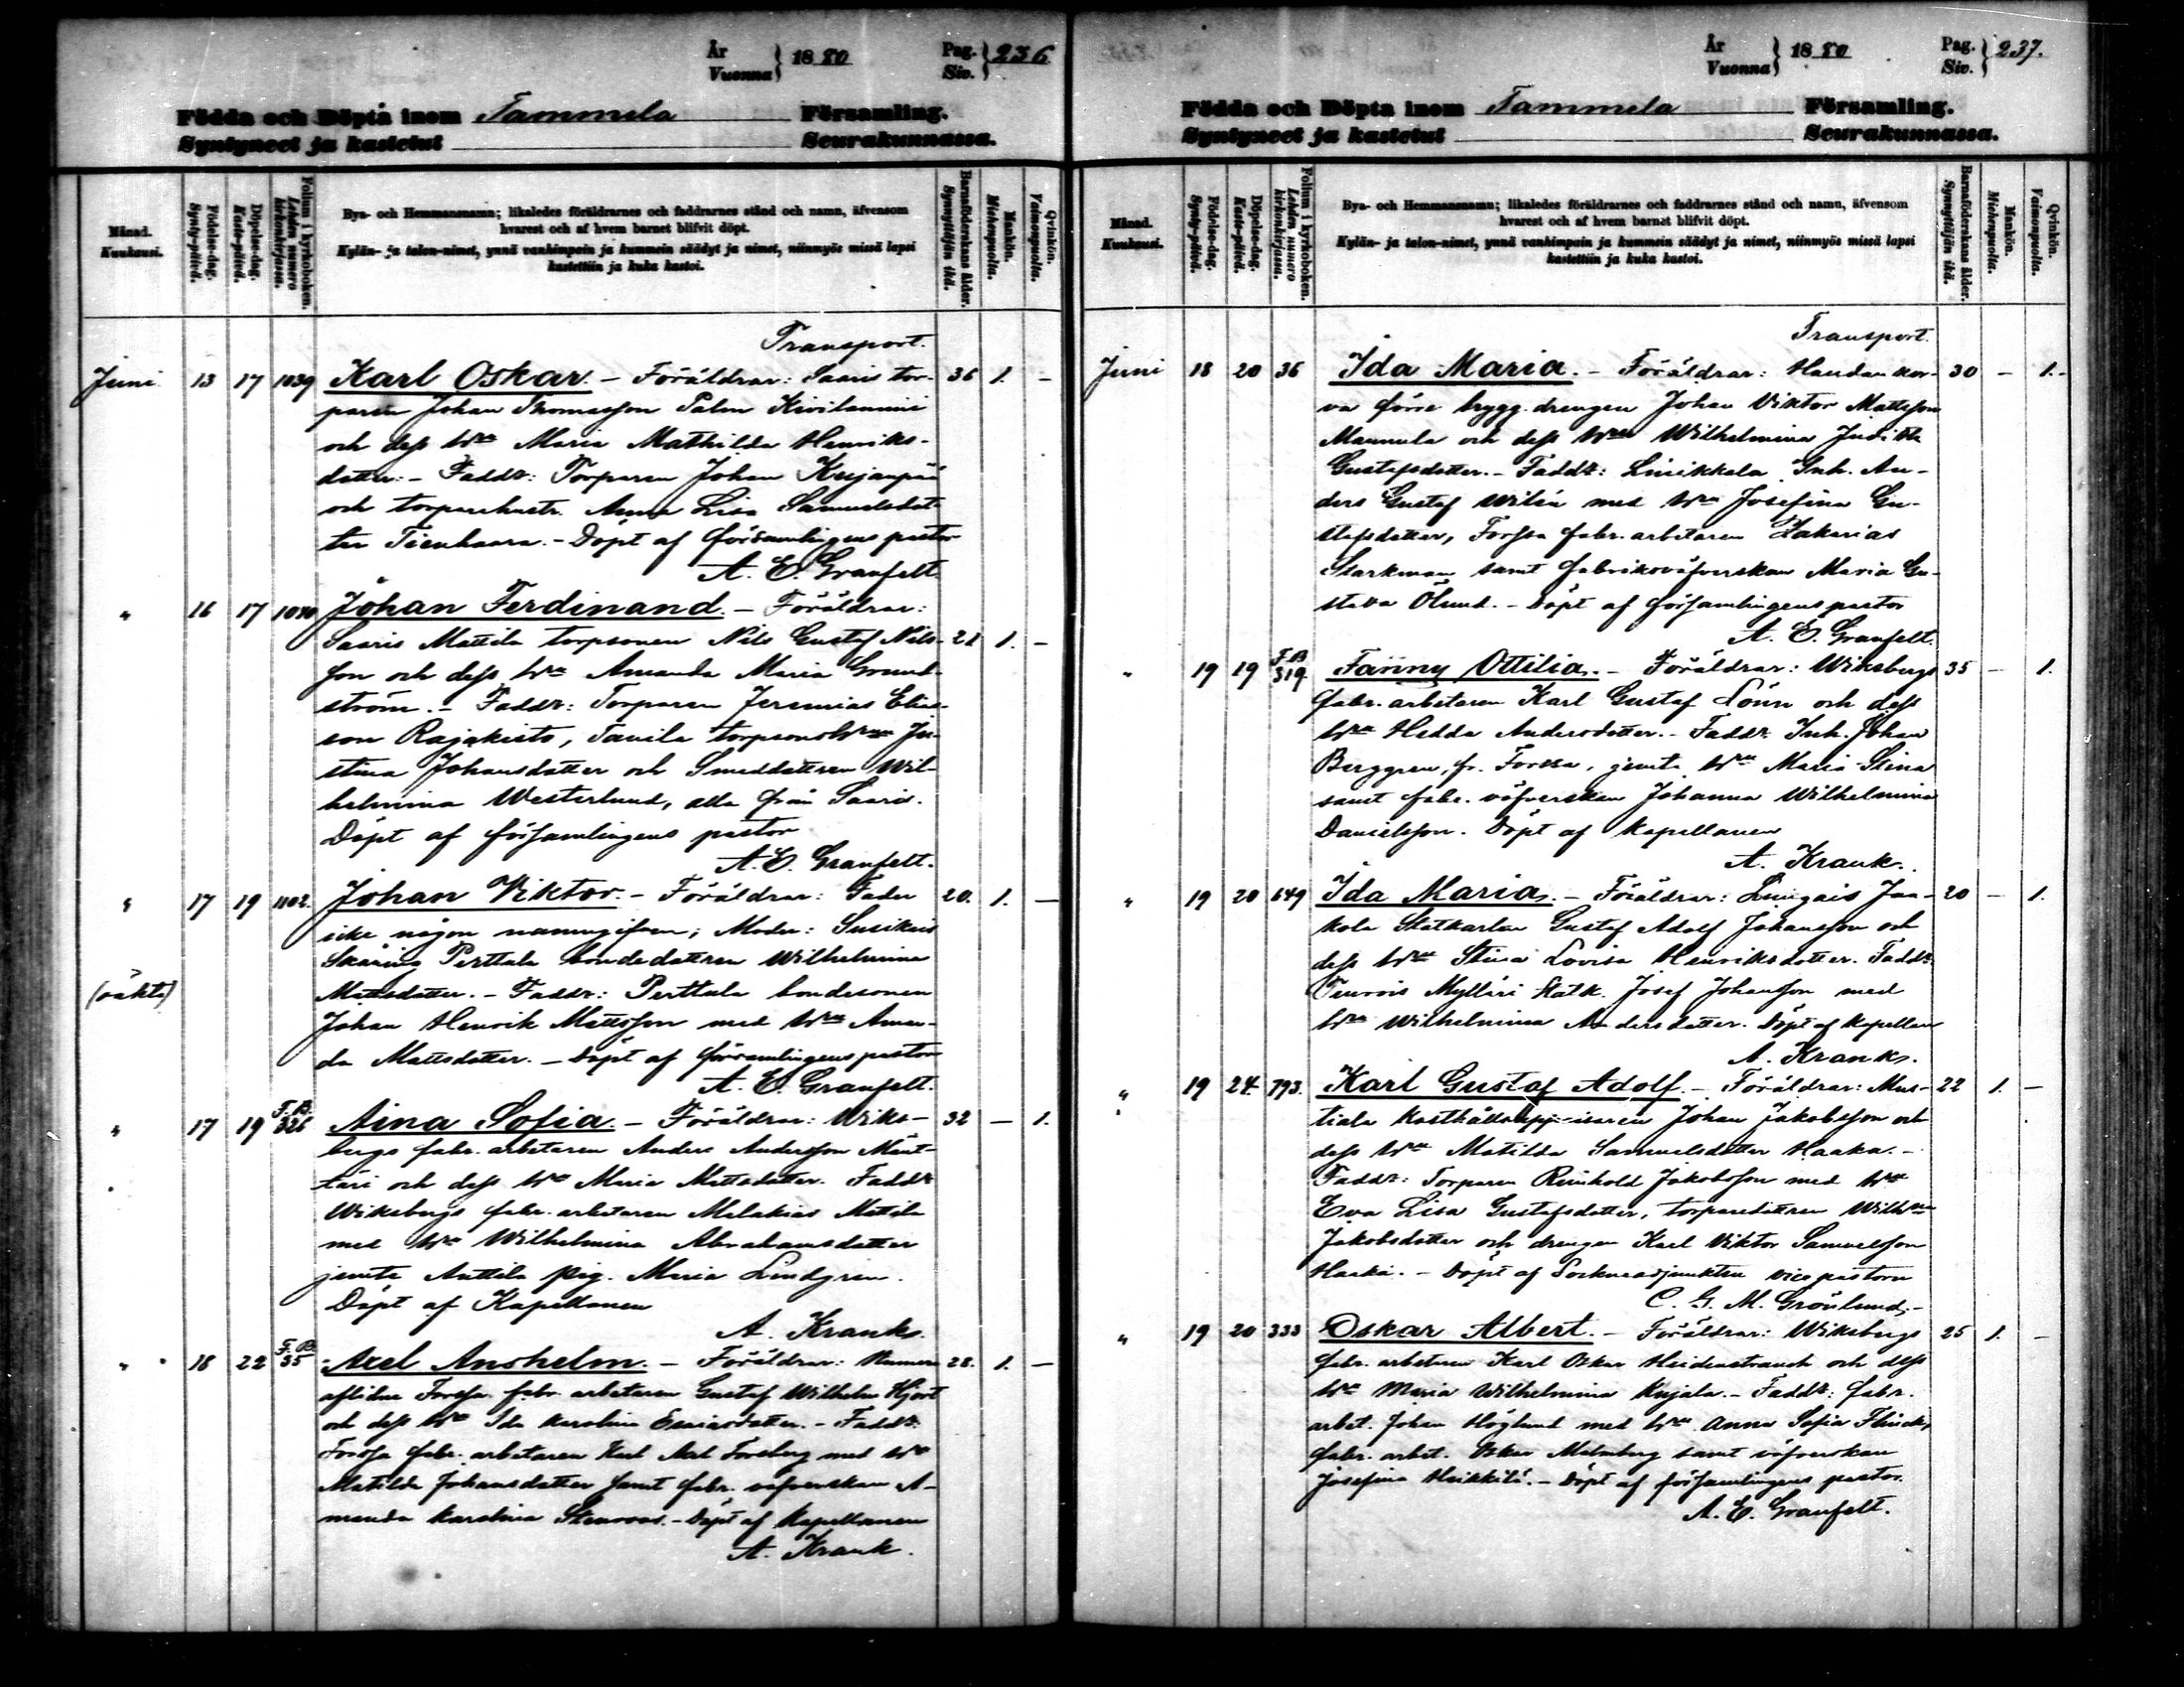 År
Vuonna } 1880
Pag.
Siv. } 236
Födda och Döpta inom Tammela Församling.
Syntyneet ja kastetut Seurakunnassa.
Månad.
Kuukausi.
Födelse-dag.
Synty-päivä.
Döpelse-dag.
Kaste-päivä.
Folium i kyrkoboken.
Lehden numero kirkonkirjassa.
Bya- och Hemmansnamn; likaledes föräldrarnes och faddrarnes stånd och namn, äfvensom
hvarest och af hvem barnet blifvit döpt.
Kylän- ja talon-nimet, ynnä vanhimpain ja kummein säädyt ja nimet, niinmyös missä lapsi
kastettiin ja kuka kastoi.
Barnaföderskans ålder.
Synnyttäjän ikä.
Mankön.
Miehenpuolta.
Qvinkön.
Vaimonpuolta.
Transport.
Juni 13 17 1039 Karl Oskar. – Föräldrar: Saaris tor- 36 1. –
paren Johan Thomasson Palm Kivilammi
och dess h:u Maria Mathilda Henriks-
dotter. – Faddr: Torparen Johan Kujanpää
och torparehustr. Anna Lisa Samuelsdot-
ter Tienhaara. – Döpt af församlingens pastor
A. E. Granfelt.
" 16 17 1040 Johan Ferdinand. – Föräldrar:
Saaris Mattila torpsonen Nils Gustaf Nils- 21 1. –
son och dess h:u Amanda Maria Grund-
ström. – Faddr: Torparen Jeremias Elias-
son Rajakisto, Tanila torpsons h:u Ju-
stina Johansdotter och Smeddottren Wil-
helmina Westerlund, alla från Saaris.
Döpt af församlingens pastor
A. E. Granfelt.
" 17 19 1102. Johan Viktor. – Föräldrar: Fader 20. 1. –
icke någon namngifven; Moder: Susikais
Skäring Perttala bondedottren Wilhelmina
(oäkta) Mattsdotter. – Faddr: Perttula bondesonen
Johan Henrik Mattsson med h:u Aman-
da Mattsdotter. – Döpt af församlingens pastor
A. E. Granfelt.
" 17 19 F.B. 326 Aina Sofia. – Föräldrar: Wiks- 32 – 1.
bergs fabr. arbetaren Anders Andersson Mänt-
täri och dess h:u Maria Mattsdotter. Faddr
Wiksbergs fabr. arbetaren Malakias Mattila
med h:u Wilhelmina Abrahamsdotter
jemte Anttila pig. Maria Lindgren.
Döpt af Kapellanen
A. Krank.
" 18 22 F.B. 35 Axel Anshelm. – Föräldrar: Numera 28. 1. –
aflidne Forssa fabr. arbetaren Gustaf Wilhelm Hjort
och dess h:u Ida Karolina Esaiasdotter. – Faddr:
Forssa fabr. arbetaren Karl Axel Forsberg med h:u
Matilda Johansdotter samt fabr. väfverskan A-
manda Karolina Stenroos. – Döpt af Kapellanen
A. Krank.
År
Vuonna } 1880
Pag.
Siv. } 237.
Födda och Döpta inom Tammela Församling.
Syntyneet ja kastetut Seurakunnassa.
Månad.
Kuukausi.
Födelse-dag.
Synty-päivä.
Döpelse-dag.
Kaste-päivä.
Folium i kyrkoboken.
Lehden numero kirkonkirjassa.
Bya- och Hemmansnamn; likaledes föräldrarnes och faddrarnes stånd och namn, äfvensom
hvarest och af hvem barnet blifvit döpt.
Kylän- ja talon-nimet, ynnä vanhimpain ja kummein säädyt ja nimet, niinmyös missä lapsi
kastettiin ja kuka kastoi.
Barnaföderskans ålder.
Synnyttäjän ikä.
Mankön.
Miehenpuolta.
Qvinkön.
Vaimonpuolta.
Transport.
Juni 18 20 36 Ida Maria. – Föräldrar: Haudankor- 30 – 1. –
va förre brygg. drengen Johan Viktor Mattsson
Mannula och dess h:u Wilhelmina Judith
Gustafsdotter. – Faddr: Linikkala Inh. An-
ders Gustaf Wilén med h:u Josefina Gu-
stafsdotter, Forssa fabr. arbetaren Zakarias
Starkman samt fabriksväfverskan Maria Gu-
stava Ölund. – Döpt af församlingens pastor
A. E. Granfelt.
" 19 19 F.B. 319 Fanny Ottilia. – Föräldrar: Wiksbergs 35 – 1.
fabr. arbetaren Karl Gustaf Lönn och dess
h:u Hedda Andersdotter. – Faddr. Inh. Johan
Berggren, fr. Forssa, jemte h:u Maria Stina
samt fabr. väfverskan Johanna Wilhelmina
Danielsson. Döpt af Kapellanen
A. Krank.
" 19 20 649 Ida Maria. – Föräldrar: Lungais Jaa- 20 – 1.
kola Statkarlen Gustaf Adolf Johansson och
dess h:u Stina Lovisa Henriksdotter. Faddr.
Teurois Mylläri Statk. Josef Johansson med
h:u Wilhelmina Andersdotter. Döpt af Kapellan
A. Krank.
" 19 24. 793. Karl Gustaf Adolf. – Föräldrar: Mus- 22 1. –
tiala Johan Jakobsson och
dess h:u Matilda Samuelsdotter Haaka. –
Faddr: Torparen Reinhold Jakobsson med h:u
Eva Lisa Gustafsdotter, torparedottren Wilh:na
Jakobsdotter och drengen Karl Viktor Samuelsson
Haaka. – Döpt af Sockneadjunkten vice pastorn
C. G. M. Grönlund. –
" 19 20 333 Oskar Albert. – Föräldrar: Wiksbergs 25 1. –
fabr. arbetaren Karl Oskar Heidenstrauch och dess
h:u Maria Wilhelmina Kujala. – Faddr: fabr.
arbet. Johan Höglund med h:u Anna Sofia Flinck,
fabr. arbet. Oskar Malmberg samt väfverskan
Josefina Heikkilä. – Döpt af församlingens pastor.
A. E. Granfelt.